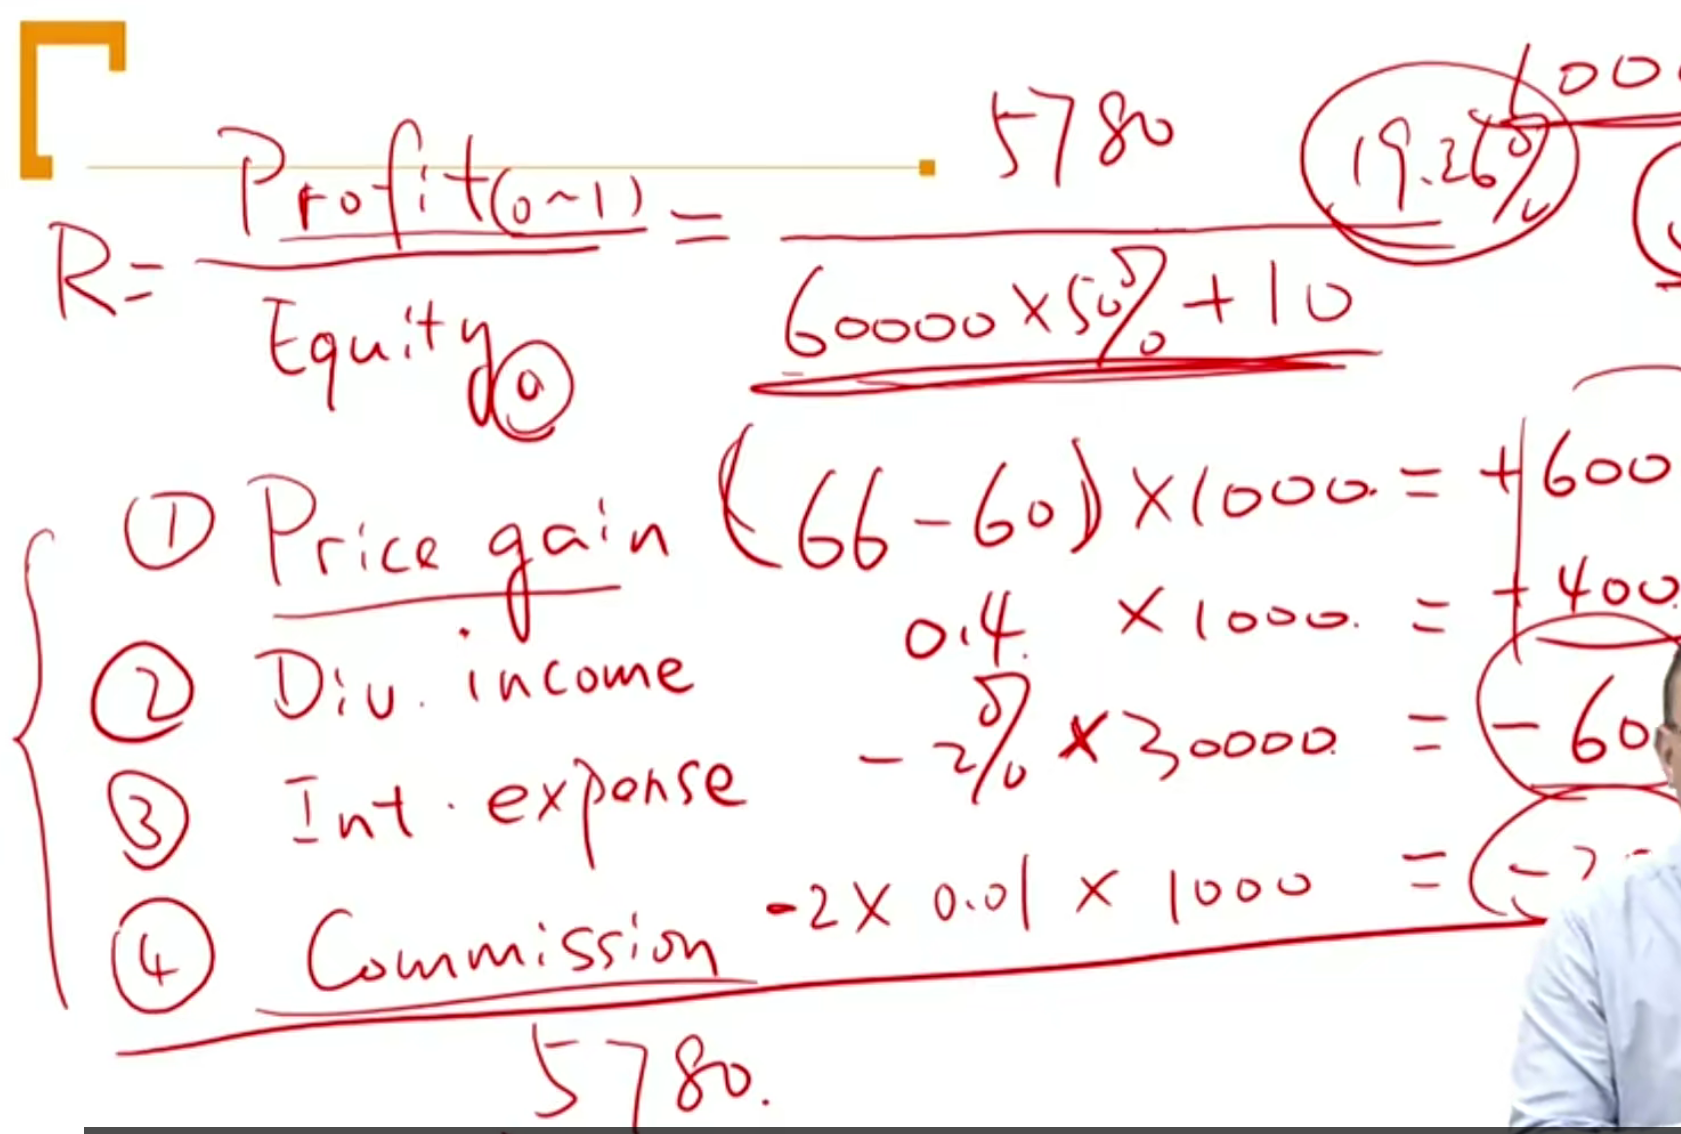 R = Profit(0~1) / Equity 0 = 5780 / 60000 × 50% + 10
19.26%
① Price gain (66 - 60) × 1000. = +600
② Div. income 0.4 × 1000. = +400.
③ Int. expense - 2% × 30000. = - 60
④ Commission -2 × 0.01 × 1000 = - 2
5780.